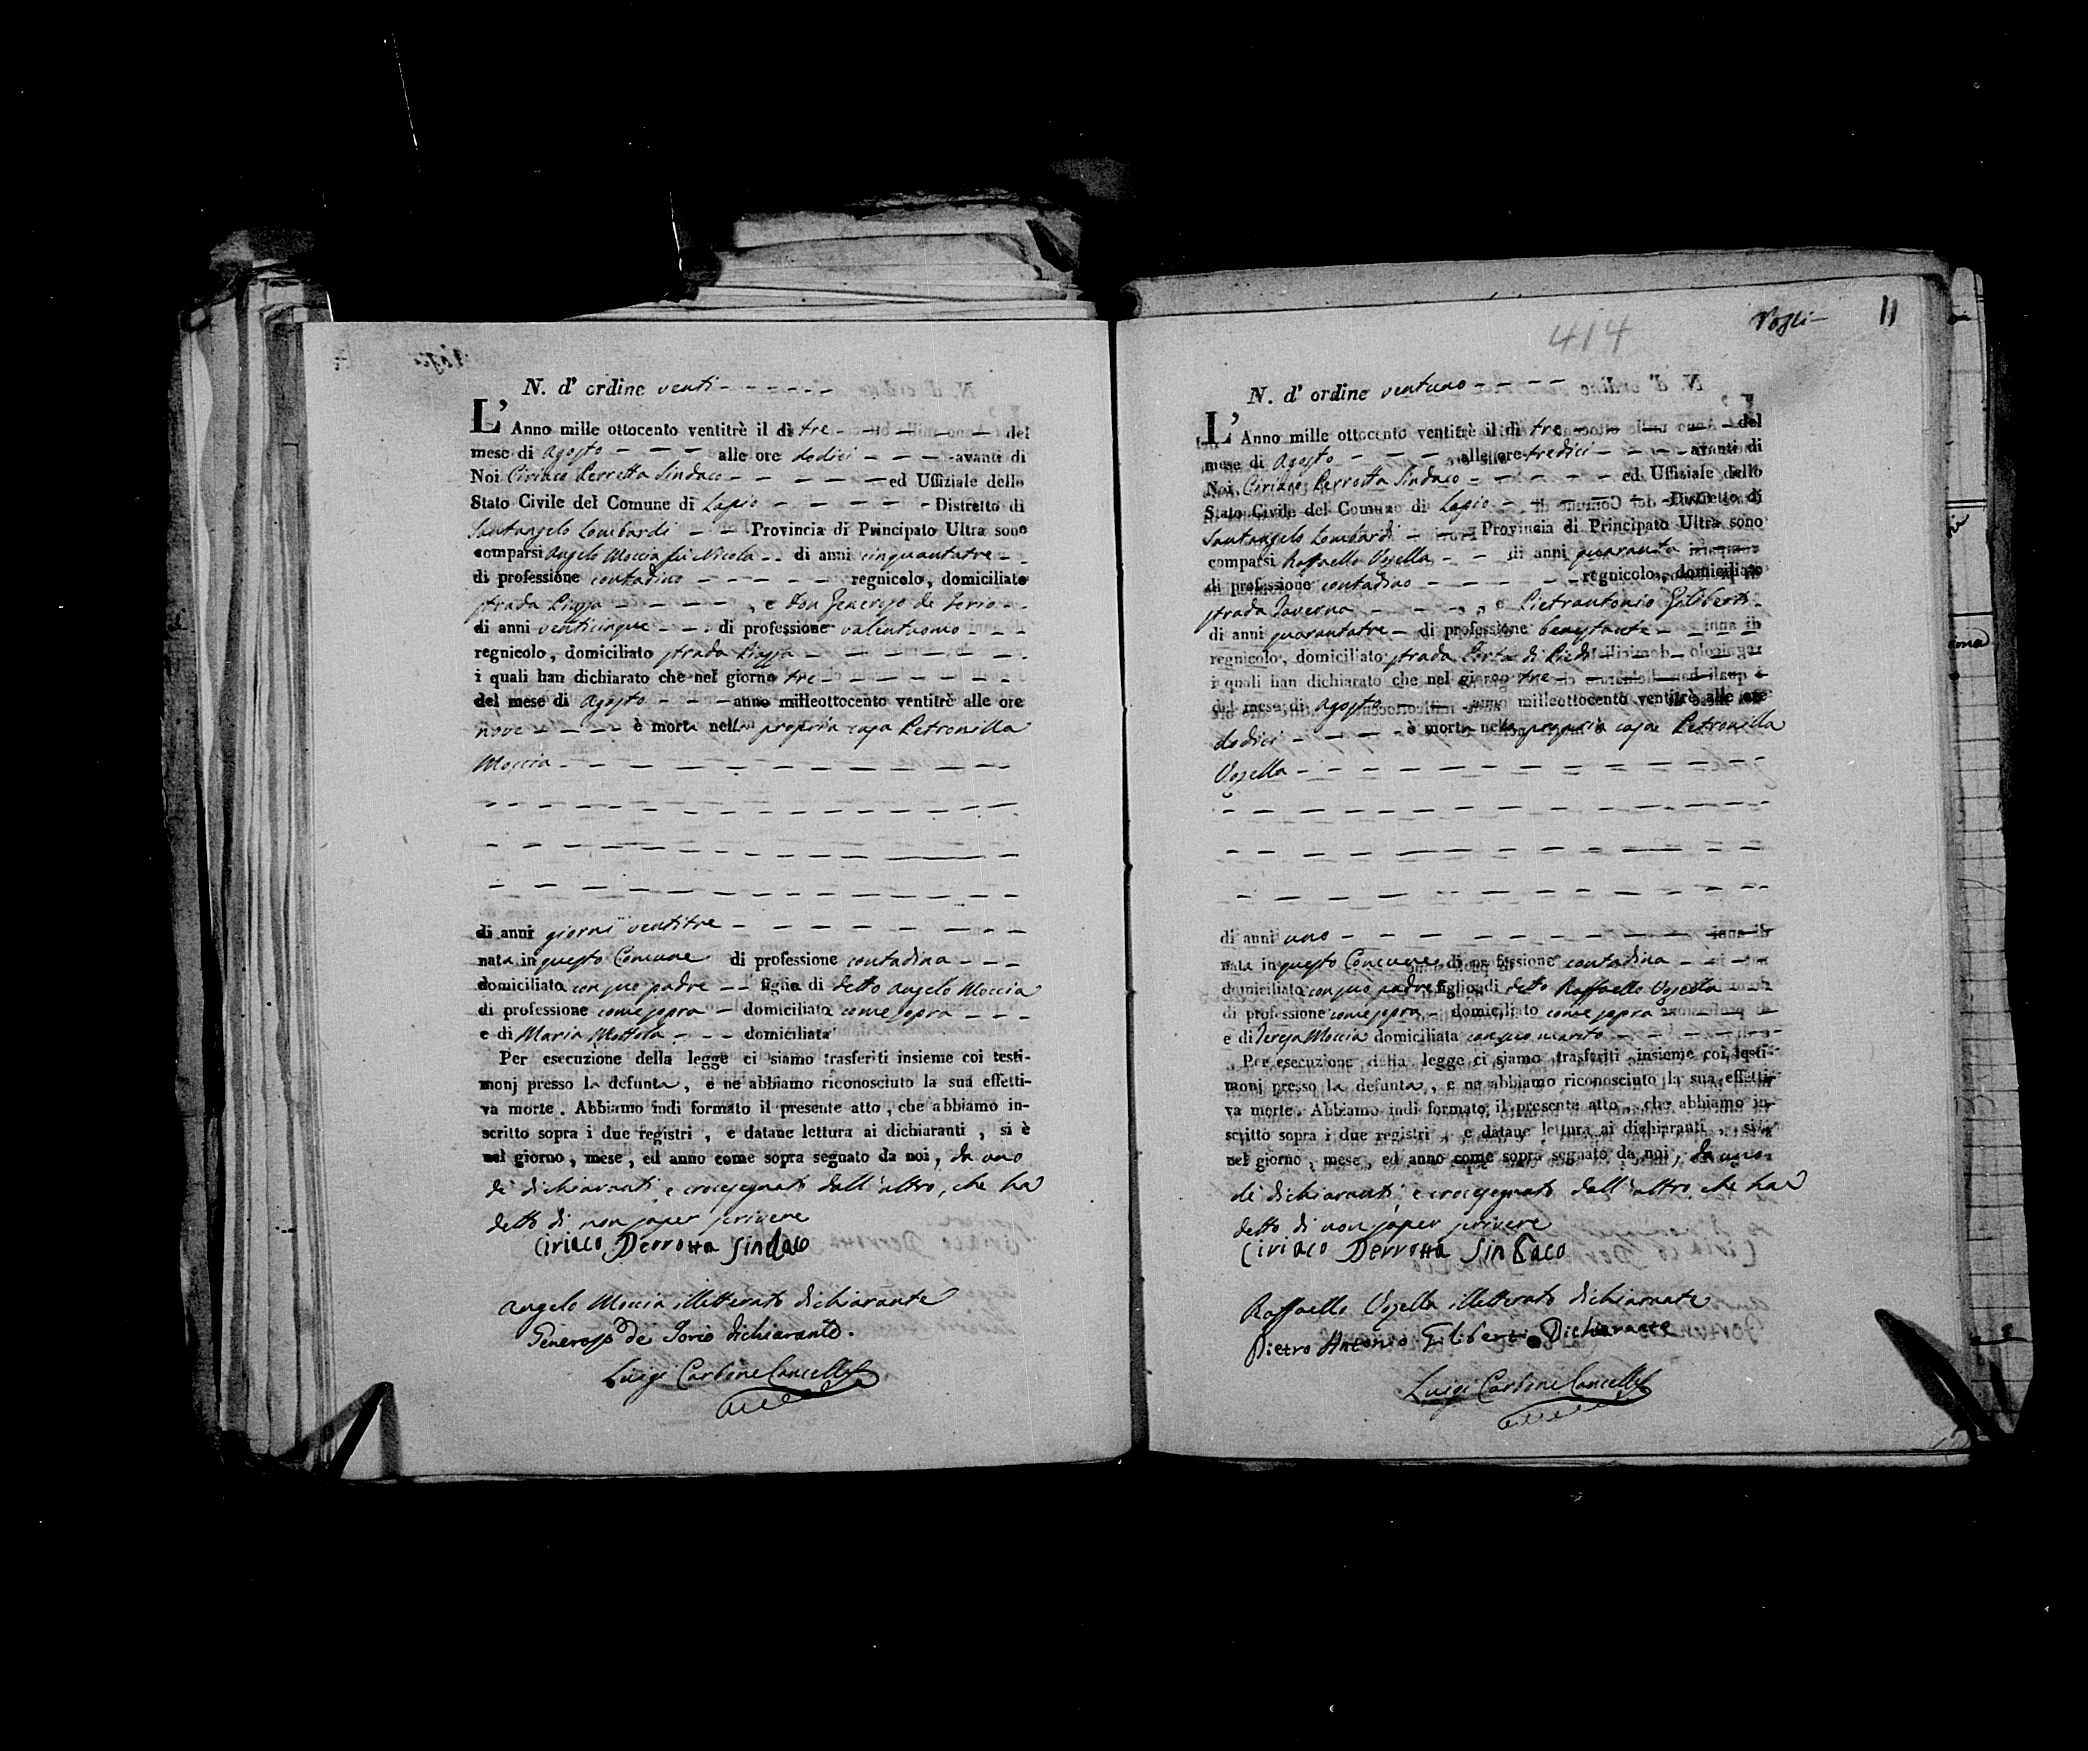 N. d' ordine venti
L' Anno mille ottocento ventitrè il dì tre del
mese di Agosto alle ore dodici avanti di
Noi Ciriaco Perrotta Sindaco ed Uffiziale dello
Stato Civile del Comune di Lapio Distretto di
Santangelo Lombardi Provincia di Principato Ultra sono
comparsi Angelo Moccia fu Nicola di anni cinquantatre
di professione contadino regnicolo, domiciliato
strada Piazza, e Don Generoso de Iorio
di anni venticinque di professione valentuomo
regnicolo, domiciliato strada Piazza
i quali han dichiarato che nel giorno tre
del mese di Agosto anno milleottocento ventitrè alle ore
nove è morta nella propria casa Petronilla
Moccia
di anni giorni ventitre
nata in questo Comune di professione contadina
domiciliata con suo padre figlia di detto Angelo Moccia
di professione come sopra domiciliato come sopra
e di Maria Mottola domiciliata
Per esecuzione della legge ci siamo trasferiti insieme coi testi-
monj presso la defunta, e ne abbiamo riconosciuto la sua effetti-
va morte. Abbiamo indi formato il presente atto, che abbiamo in-
scritto sopra i due registri, e datane lettura ai dichiaranti, si è
nel giorno, mese, ed anno come sopra segnato da noi, da uno
de' dichiaranti, e crocesegnato dall'altro, che ha
detto di non saper scrivere
Ciriaco Perrotta Sindaco
Angelo Moccia illetterato dichiarante
Generoso de Iorio dichiarante.
Luigi Carbone Cancell.
414
Vozli
11
N. d' ordine ventuno
L' Anno mille ottocento ventitrè il dì tre del
mese di Agosto alle ore tredici avanti di
Noi Ciriaco Perrotta Sindaco ed Uffiziale dello
Stato Civile del Comune di Lapio Distretto di
Santangelo Lombardi Provincia di Principato Ultra sono
comparsi Raffaello Vozella di anni quaranta
di professione contadino regnicolo, domiciliato
strada Taverna, e Pietrantonio Giliberti
di anni quarantatre di professione benestante
regnicolo, domiciliato strada Porta di Piedi
i quali han dichiarato che nel giorno tre
del mese di Agosto anno milleottocento ventitrè alle ore
dodici è morta nella propria casa Petronilla
Vozella
di anni uno
nata in questo Comune di professione contadina
domiciliata con suo padre figlia di detto Raffaello Vozella
di professione come sopra domiciliato come sopra
e di Teresa Moccia domiciliata con suo marito
Per esecuzione della legge ci siamo trasferiti insieme coi testi-
monj presso la defunta, e ne abbiamo riconosciuto la sua effetti-
va morte. Abbiamo indi formato il presente atto, che abbiamo in-
scritto sopra i due registri, e datane lettura ai dichiaranti, si è
nel giorno, mese, ed anno come sopra segnato da noi, da uno
de' dichiaranti, e crocesegnato dall'altro, che ha
detto di non saper scrivere
Ciriaco Perrotta Sindaco
Raffaello Vozella illetterato dichiarante
Pietro Antonio Giliberti Dichiarante
Luigi Carbone Cancell.